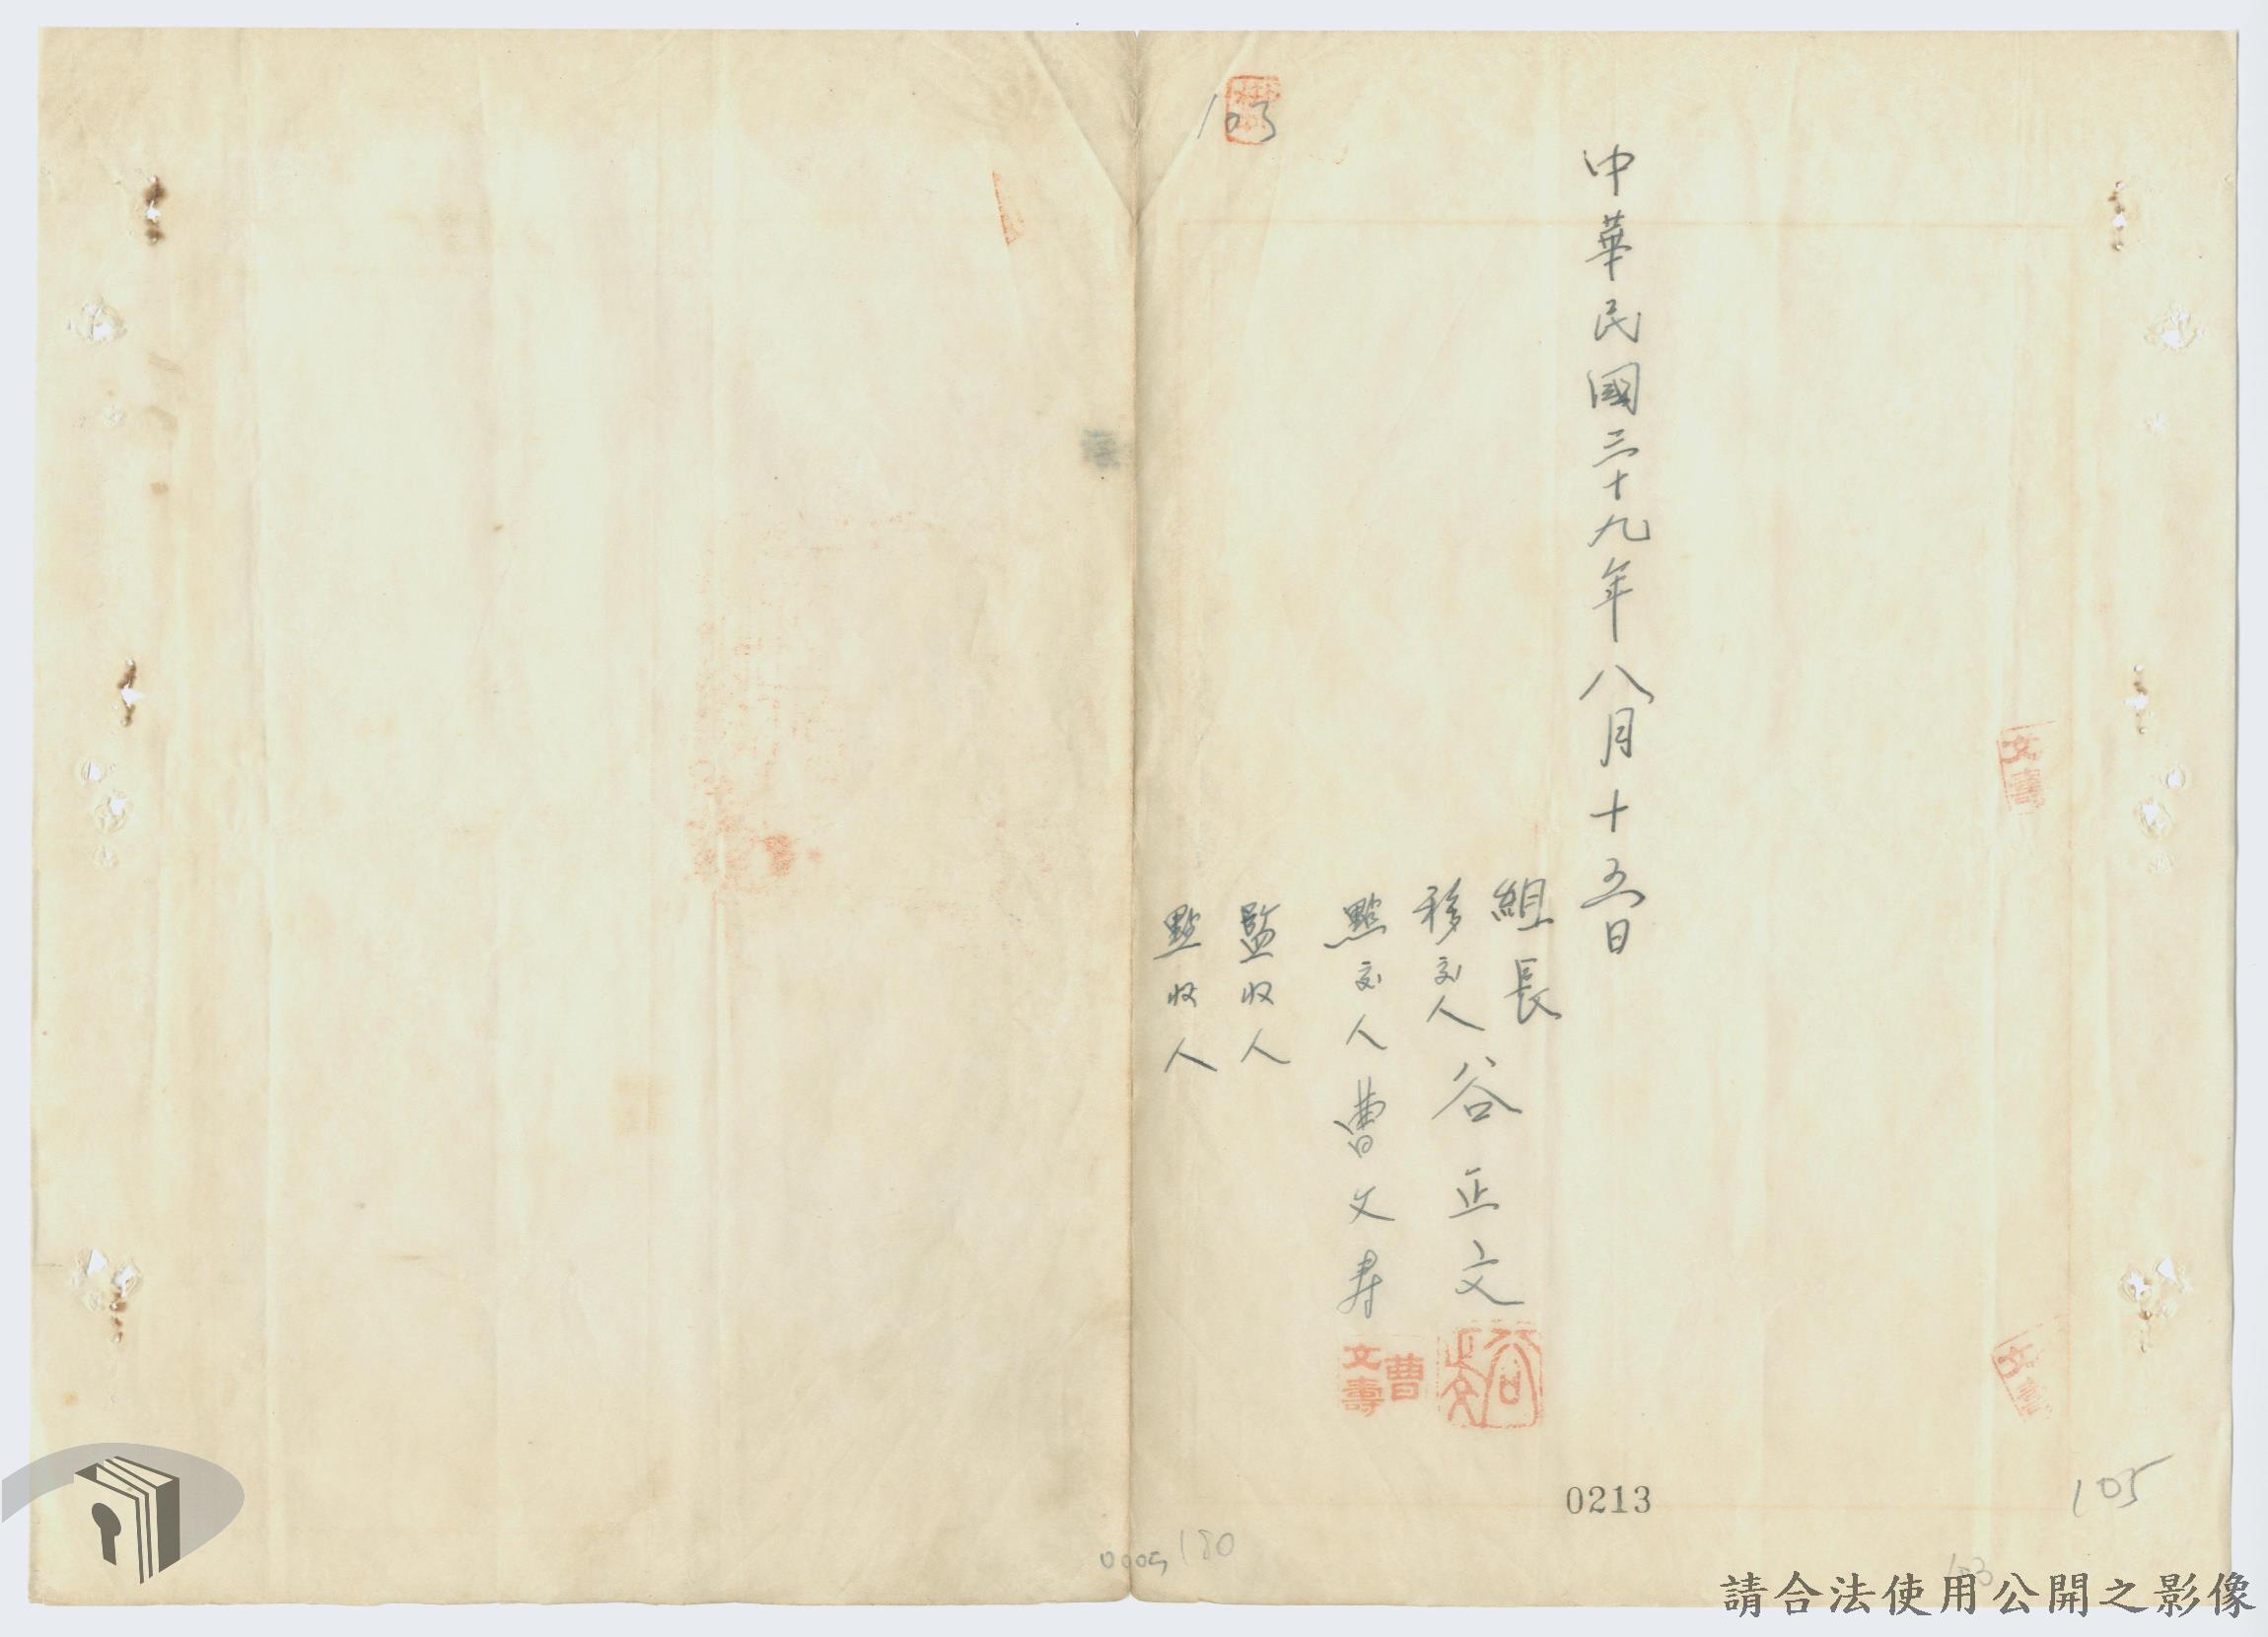 中華民國三十九年八月十五日
組長
移交人 谷正文
點交人 曹文寿
監收人
點收人
谷正文
曹文壽
文壽
文壽
103
105
0213
180
請合法使用公開之影像